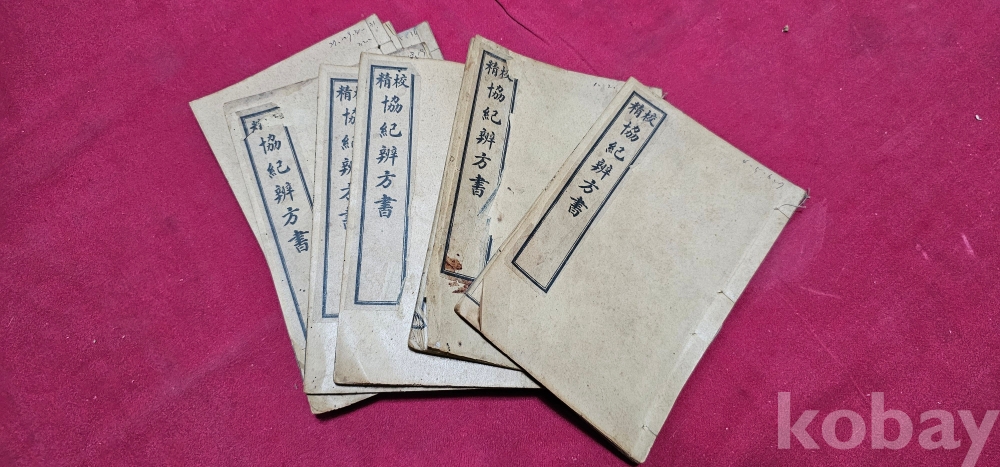 協紀辨方書
精校
協紀辨方書
精校
協紀辨方書
精校
協紀辨方書
精校
協紀辨方書
kobay